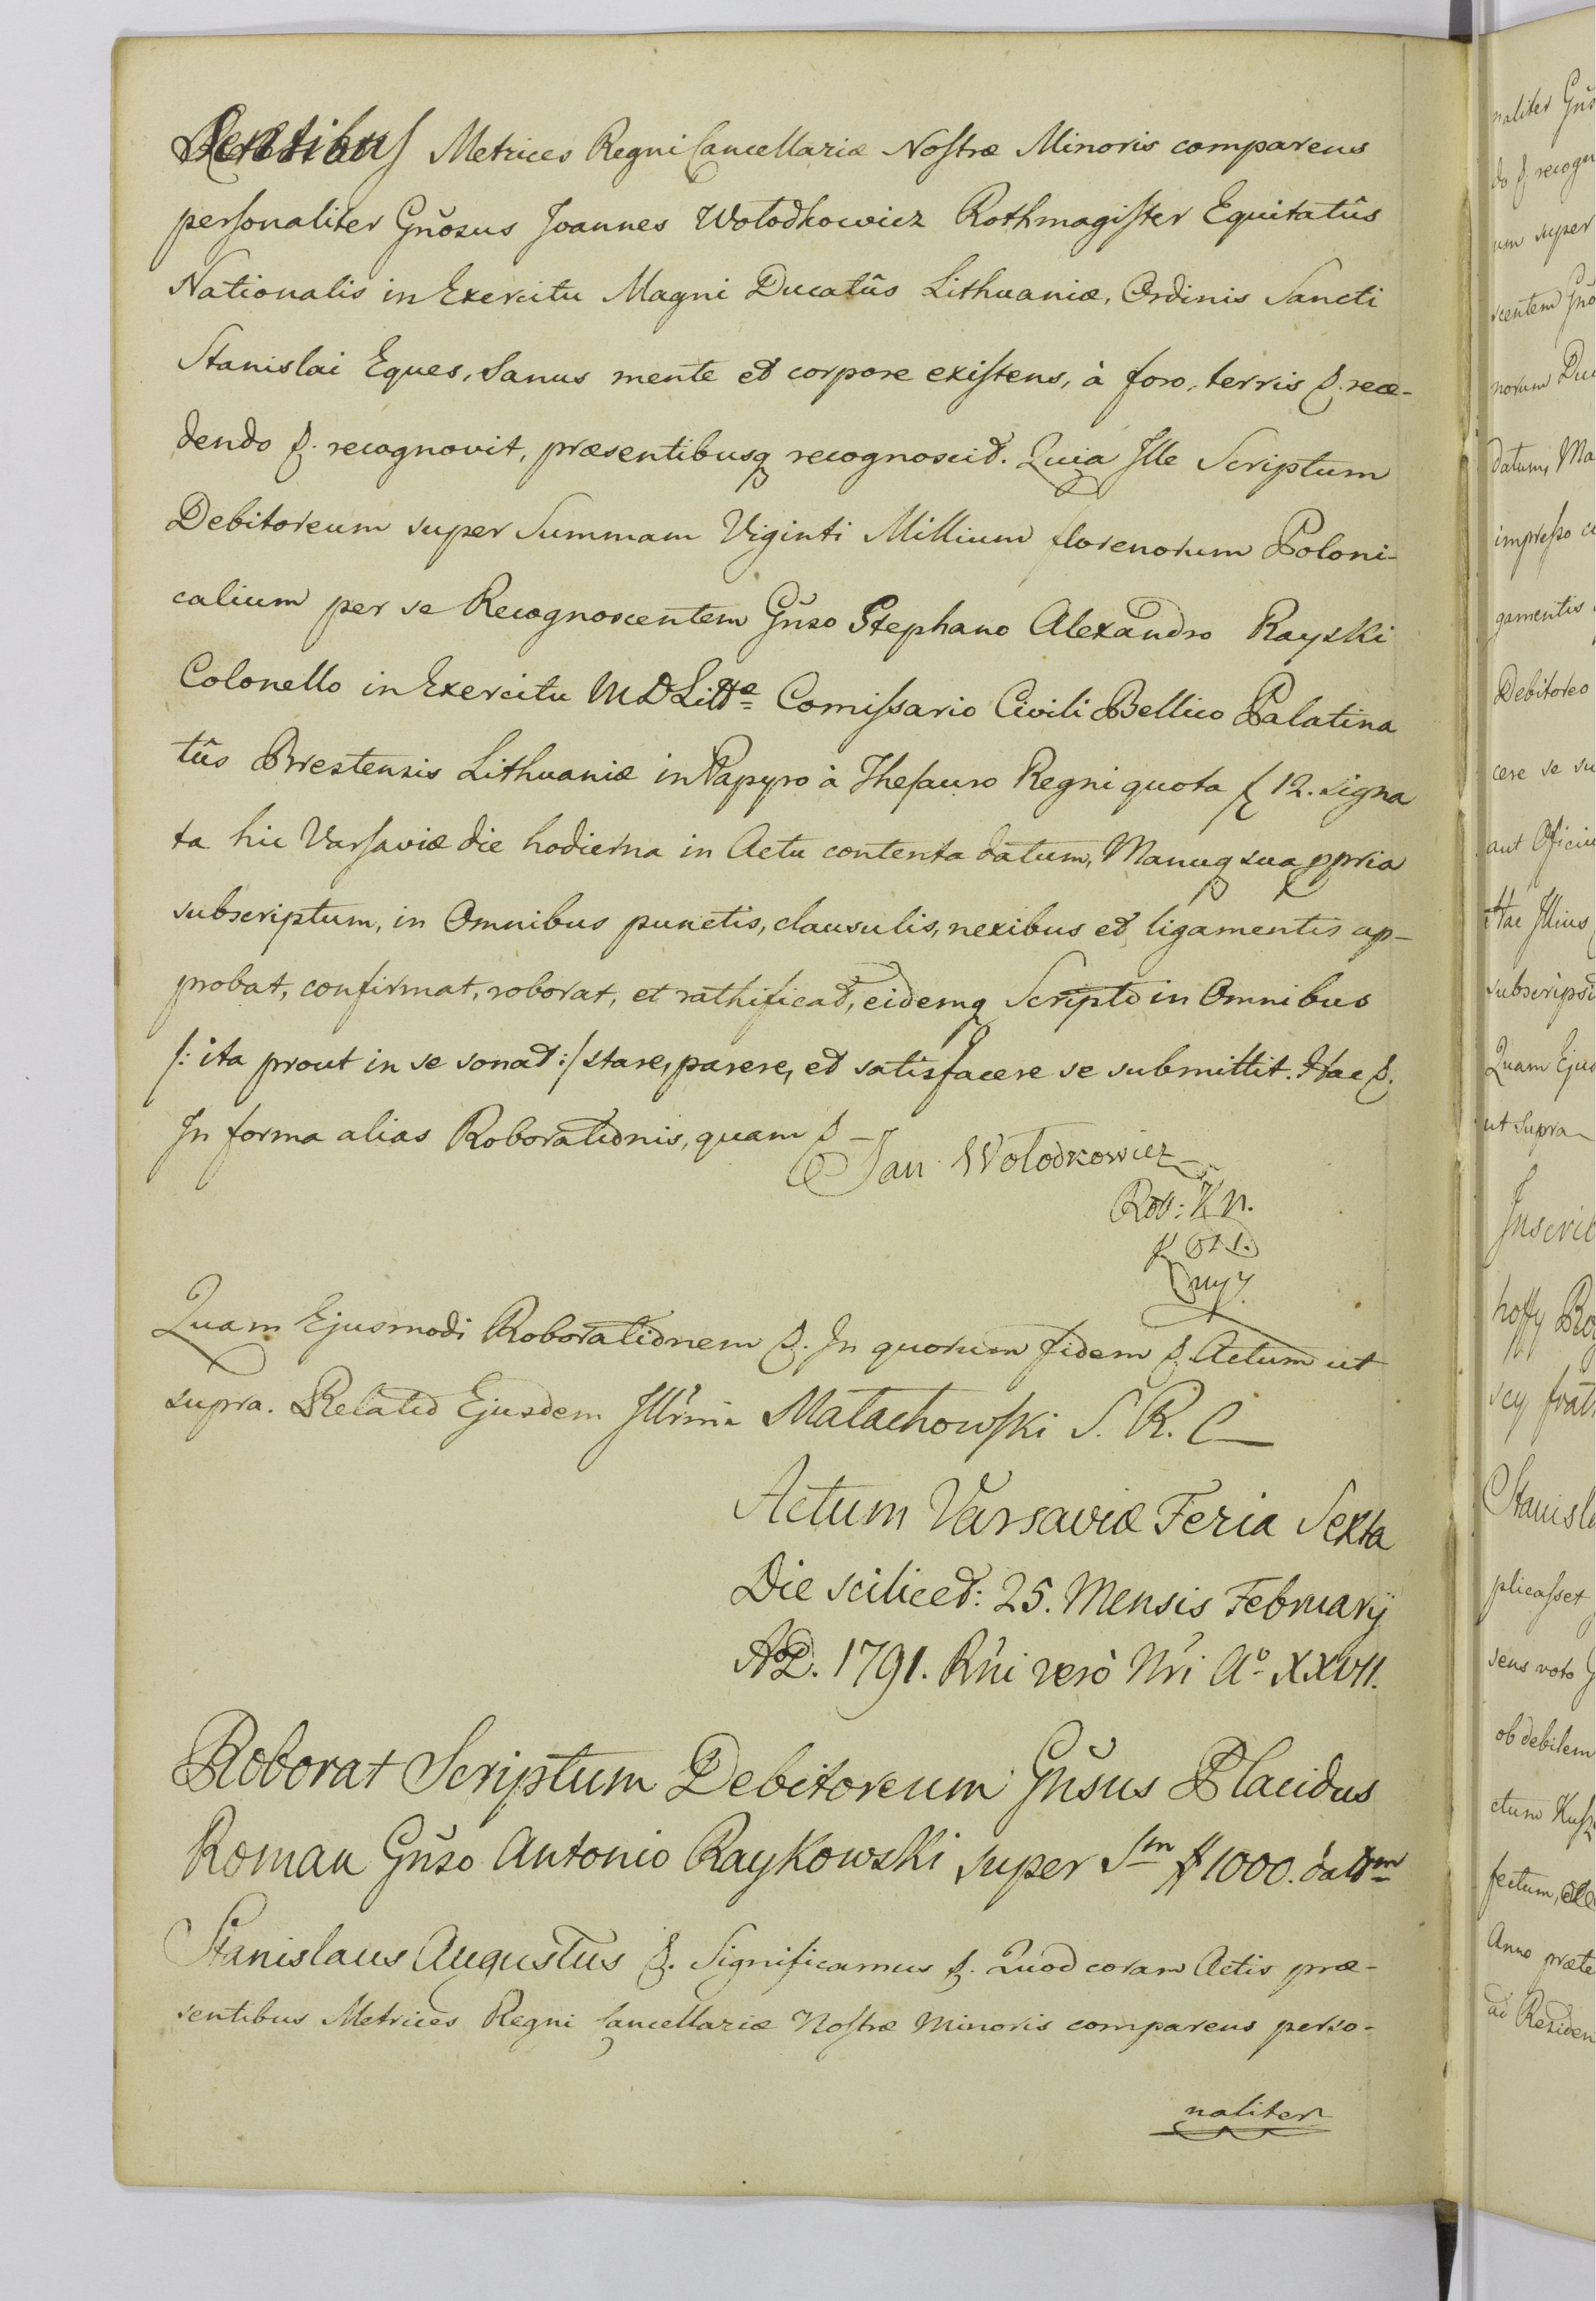 sentibus Metrices Regni Cancellariæ Nostræ Minoris comparens
personaliter Gnosus Joannes Wołodkowicz Rothmagister Equitatûs
Nationalis in Exercitu Magni Ducatûs Lithuaniæ, Ordinis Sancti
Stanislai Eques, Sanus mente et corpore existens, à foro, terris &. rece-
dendo &. recognovit, præsentibusq recognoscit. Quia Ille Scriptum
Debitoreum super Summam Viginti Millium florenorum Poloni-
calium per se Recognoscentem Gnso Stephano Alexandro Rayski
Colonello in Exercitu M D Littæ Comissario Civili Bellico Palatina
tûs Brestensis Lithuaniæ in Papyro à Thesauro Regni quota f 12. signa
ta hic Varsaviæ die hodierna in Actu contenta datum, Manuq sua ppria
subscriptum, in Omnibus punctis, clausulis, nexibus et ligamentis ap-
probat, confirmat, roborat, et rathificat, eidemq Scripto in Omnibus
/: ita prout in se sonat :/ stare, parere, et satisfacere se submittit. Hac &.
In forma alias Roborationis, quam &
Jan Wołodkowicz
Rot: K N.
Quam Ejusmodi Roborationem &. In quorum fidem &. Actum ut
supra. Relatio Ejusdem Illrmi Małachowski S. R. C
Actum Varsaviæ Feria Sexta
Die scilicet: 25. Mensis Februarij
AoD. 1791. Rńi verò Nri Ao XXVII.
Roborat Scriptum Debitoreum Gnsus Placidus
Roman Gnso Antonio Raykowski super Sm # 1000. datm
Stanislaus Augustus &. Significamus &. Quod coram Actis præ-
sentibus Metrices Regni Cancellariæ Nostræ Minoris comparens perso-
naliter
naliter
do &. recogn
um super
scentem
norum
datum, Ma
impresso
gamentis
Debitoreo
cere se su
aut Oficiu
Hac Illius
subscripsi
Quam Ejus
ut supra
Inscrib
Stanisla
plicasset
sens voto
ob debilem
ctum
fectum,
Anno præte
ad Residen